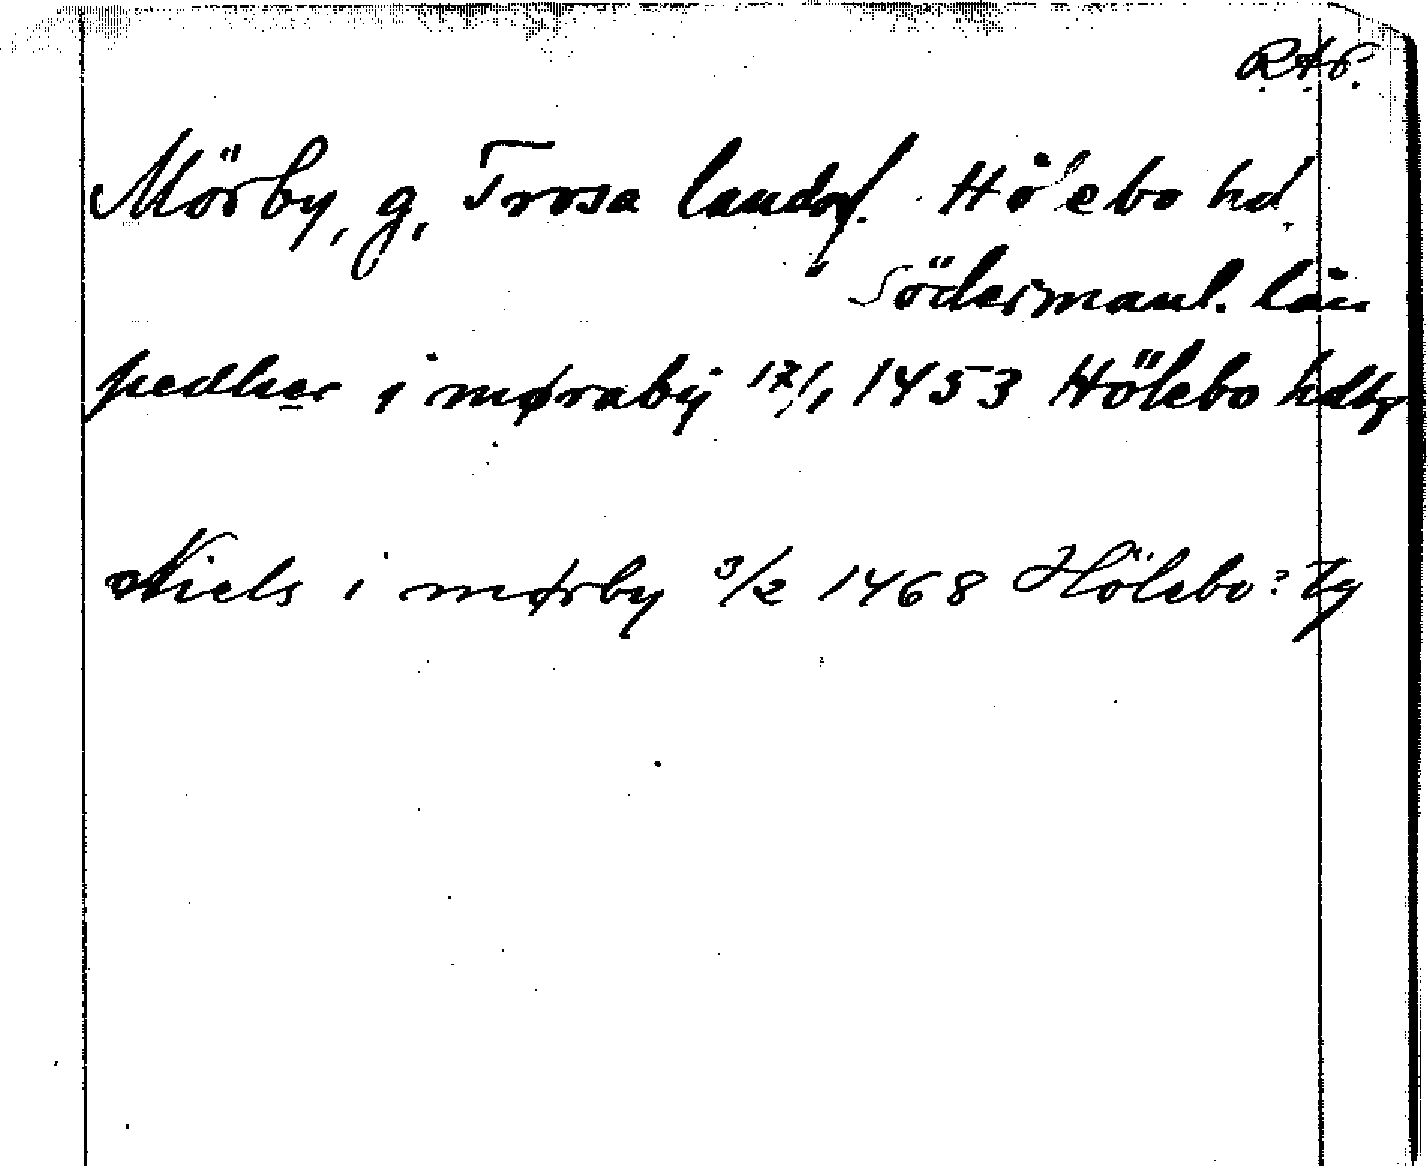 R.A.P.
Mörby, g, Trosa landsf. Hölebo hd.
Södermanl. län
pedher i møraby 17/1 1453 Hölebo hdtg
Niels i mørby 3/2 1468 Hölebo? tg